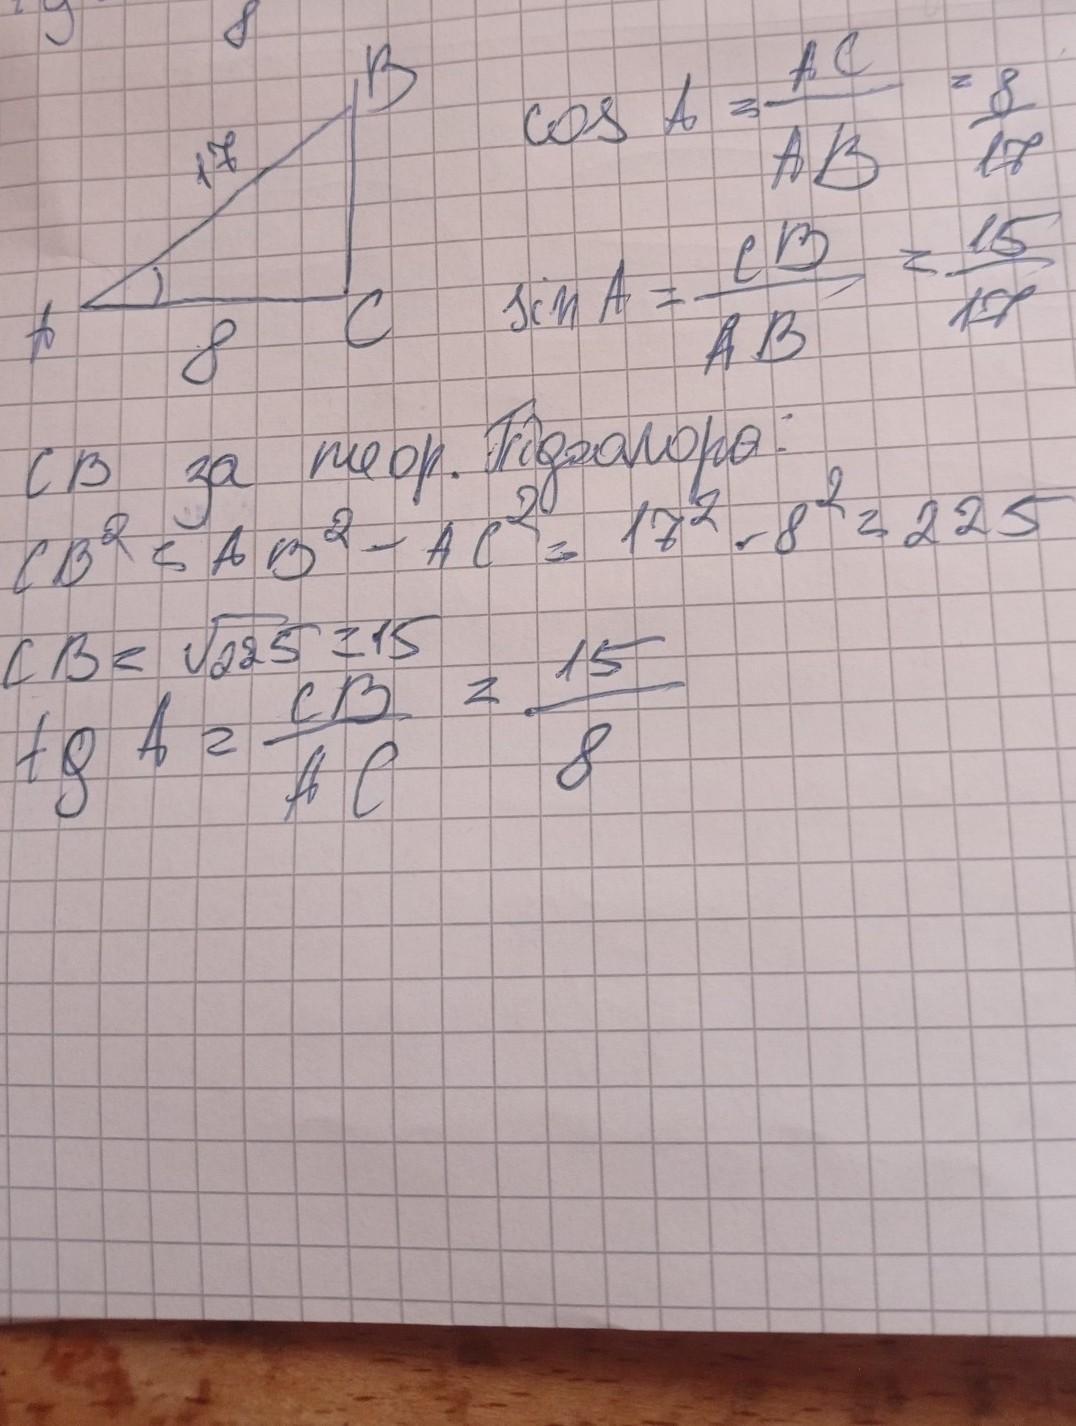 8
B
17
A
8
C
cos A = AC / AB = 8 / 17
sin A = CB / AB = 15 / 17
CB за теор. Підфагора:
CB² = AB² - AC² = 17² - 8² = 225
CB = √225 = 15
tg A = CB / AC = 15 / 8